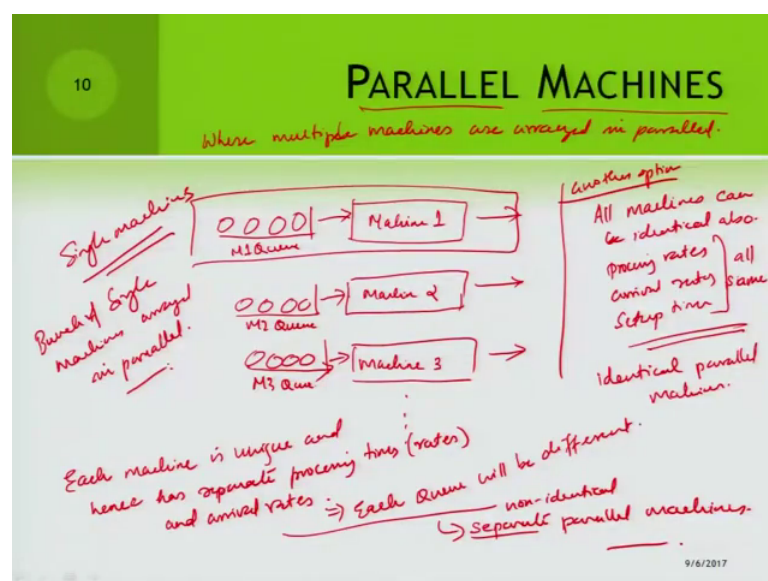 10
PARALLEL MACHINES
Where multiple machines are arranged in parallel.
Single machines
Bunch of Single
machines arranged
in parallel.
0000 → Machine 1 →
M1 Queue
0000 → Machine 2 →
M2 Queue
0000 → Machine 3 →
M3 Queue
another option
All machines can
be identical also.
procing rates
arrival rates
Setup times
all
same
identical parallel
machines.
Each machine is unique and
hence has separate processing times (rates)
and arrival rates ⇒ Each Queue will be different.
non-identical
↳ separate parallel machines.
9/6/2017